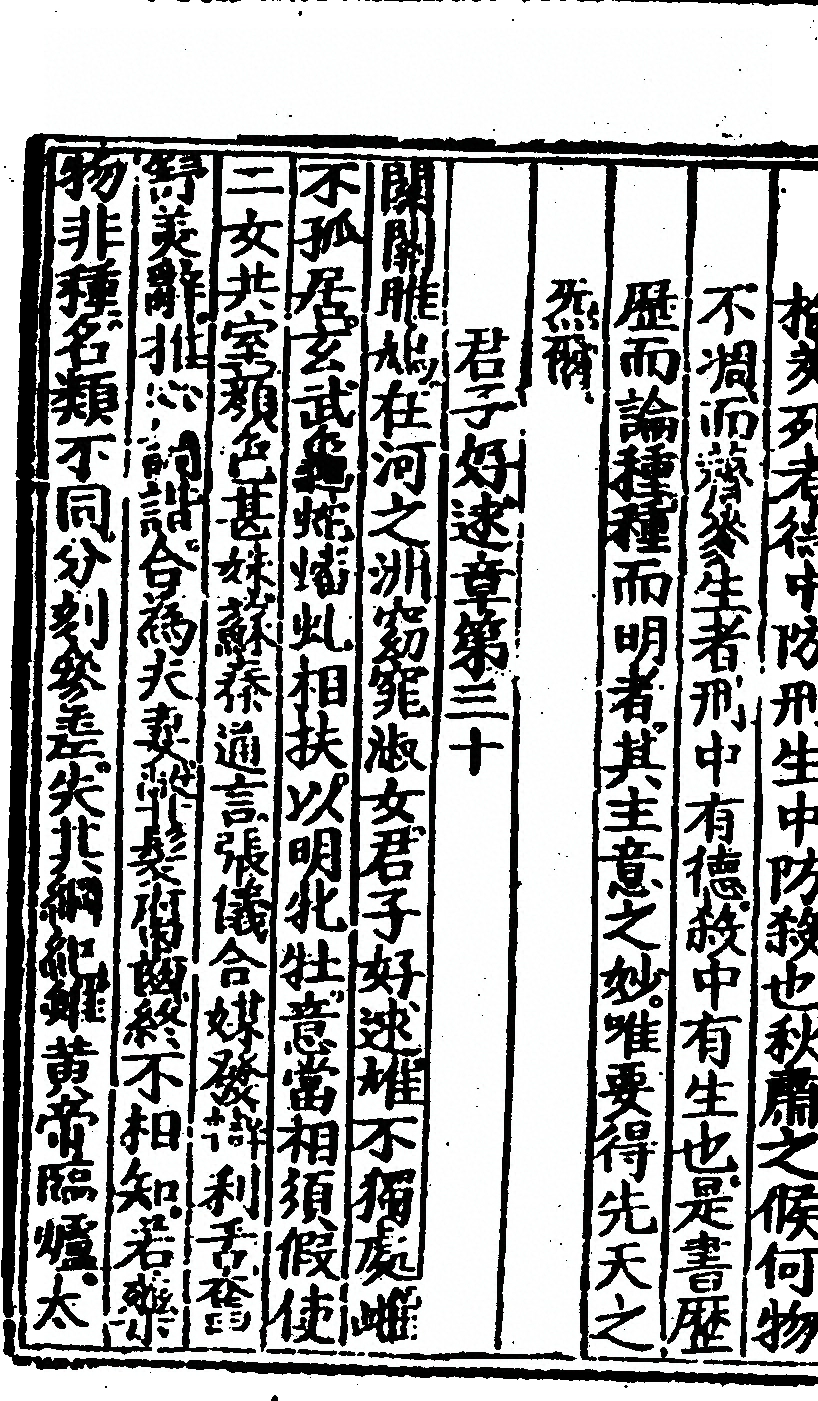 於死者德中防刑生中防殺也秋肅之候何物
不凋而薺麥生者刑中有德殺中有生也是書歷
歷而論種種而明者其主意之妙唯要得先天之
炁爾
君子好逑章第三十
關關雎鳩在河之洲窈窕淑女君子好逑雄不獨處雌
不孤居玄武龜蛇蟠虬相扶以明牝牡意當相須假使
二女共室顏色甚姝蘇秦通言張儀合媒發辯利舌奮
舒美辭推心調諧合為夫妻弊髮腐齒終不相知若藥
物非種名類不同分刻參差失其綱紀雖黃帝臨爐太